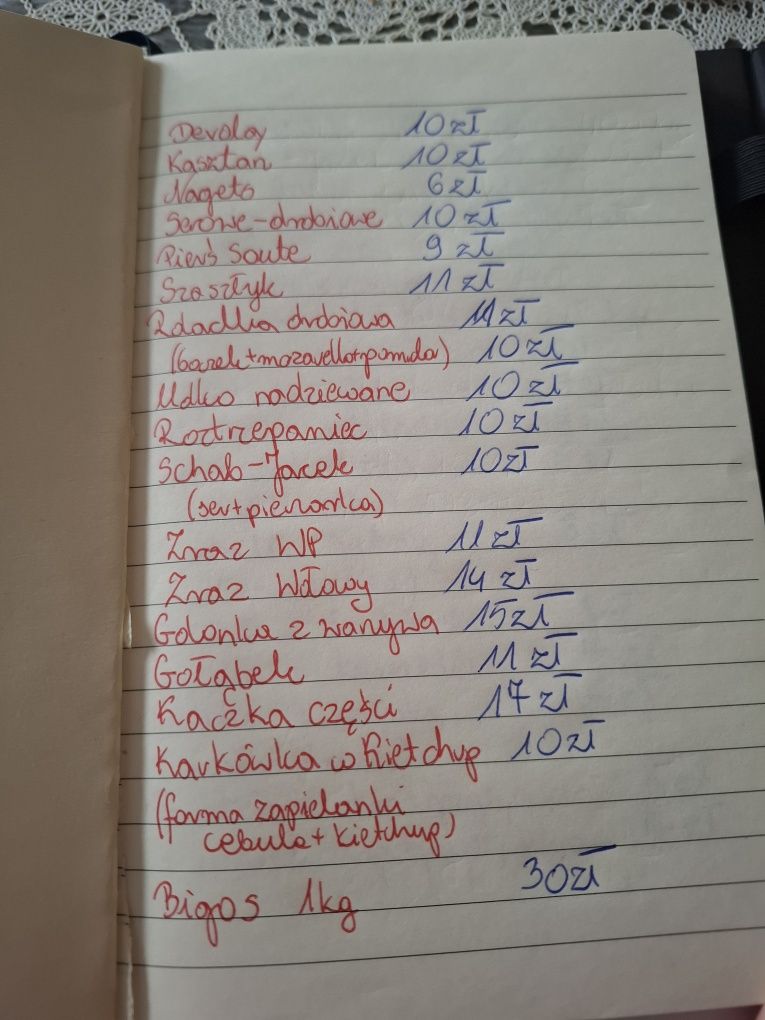 Devolay 10 zł
Kasztan 10 zł
Nagets 6 zł
Serowe-drobiowe 10 zł
Pierś Saute 9 zł
Szaszłyk 11 zł
Roladka drobiowa 11 zł
(boczek+mozarella+pomido) 10 zł
Udko nadziewane 10 zł
Roztrzepaniec 10 zł
Schab-Jacek 10 zł
(ser+pieczarka)
Zraz WP 11 zł
Zraz Wołowy 14 zł
Golonka z warzywa 15 zł
Gołąbek 11 zł
Kaczka części 17 zł
Karkówka w Kietchup 10 zł
(forma zapiekanki
cebula+kietchup)
Bigos 1kg 30 zł